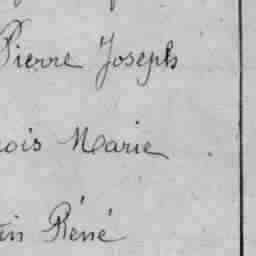 Pierre Joseph
ois Marie
in Réné